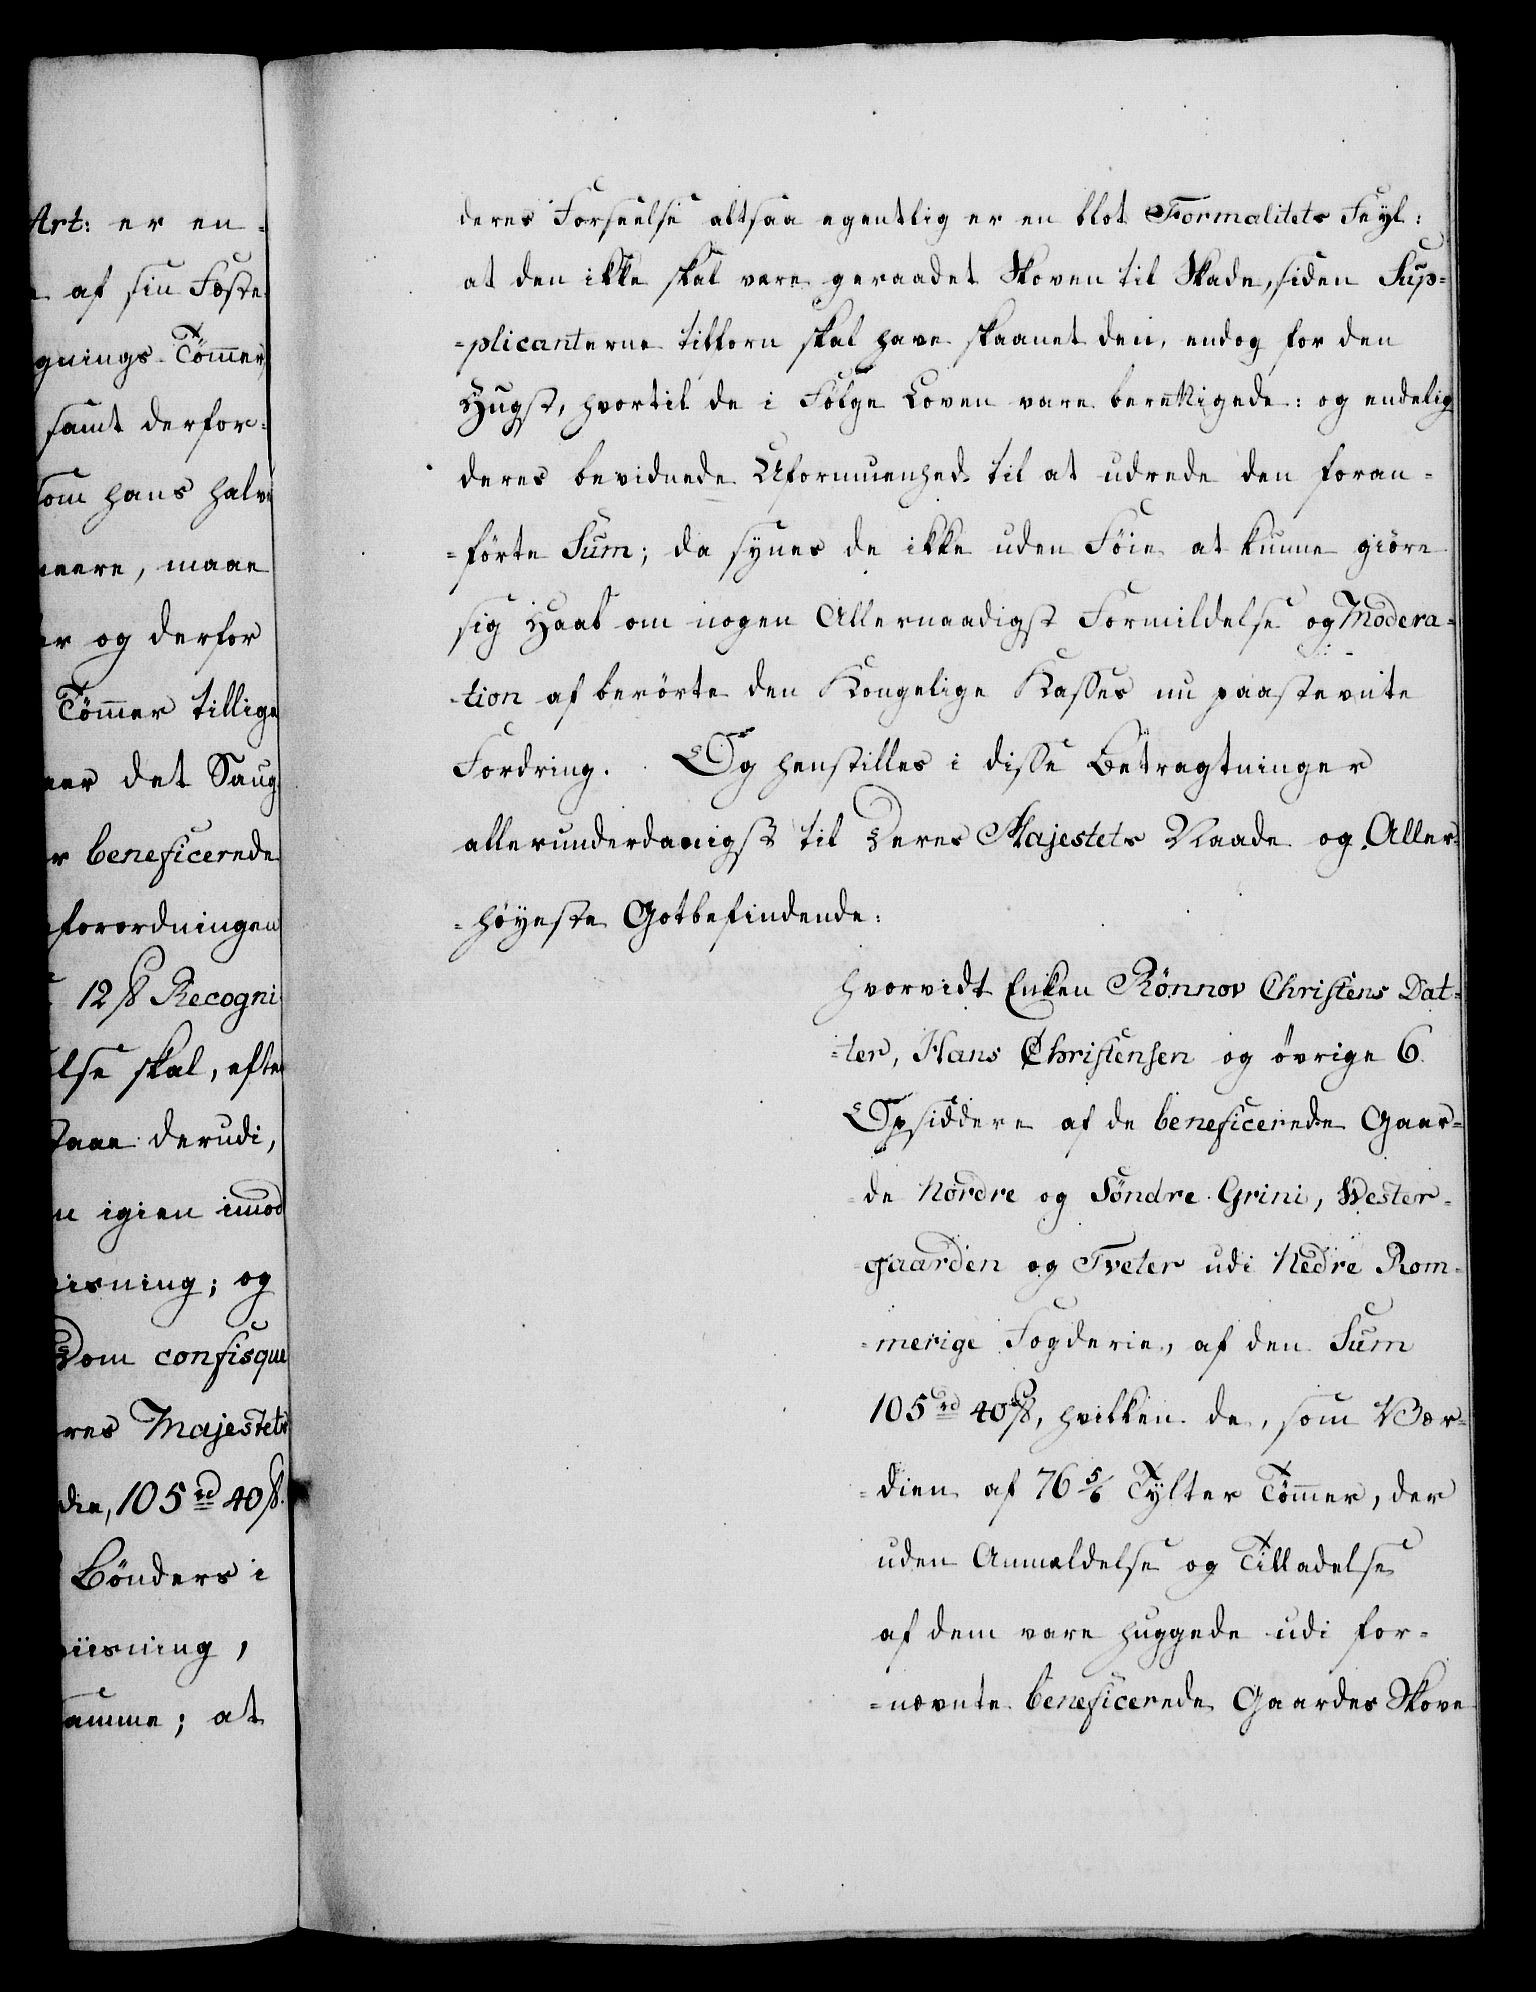 Art: er en-
af sin Fæste
gnings Tömer
samt derfor-
som hans halve
meere, maae
er og derfor
Tömer tillige
det Saug
beneficerede
forordningen
12 ß Recogni
else skal, efter
staae derudi,
igien imod
viisning; og
Dom confisque
res Majestets
die, 105 rd 40 ß.
Bönders i
viisning,
samme; at
deres Forseelse altsaa egentlig er en blot Formalitets Feyl:
at den ikke skal være geraadet Skoven til Skade, siden Sup-
-plicanterne tilforn skal have skaanet den, endog for den
Hugst, hvortil de i Fölge Loven vare berettigede: og endelig
deres bevidnede Uformuenhed til at udrede den foran-
-förte Sum; da synes de ikke uden Föie at kunne giöre
sig Haab om nogen Allernaadigst Formildelse og Modera-
-tion af berörte den Kongelige Kasses nu paastevnte
Fordring. Og henstilles i disse Betragtninger
allerunderdanigst til Deres Majestets Naade og Aller-
-höyeste Gotbefindende:
hvorvidt Enken Rönnov Christens Dat-
-ter, Hans Christensen og övrige 6
Opsiddere af de beneficerede Gaar-
de Nordre og Söndre Grini, Wester-
gaarden og Tveter udi Nedre Rom-
-merige Fogderie, af den Sum
105 rd 40 ß, hvilken de, som Vær-
-dien af 76 5/6 Tylter Tömer, der
uden Anmeldelse og Tilladelse
af dem vare huggede udi for-
-nævnte beneficerede Gaardes Skove